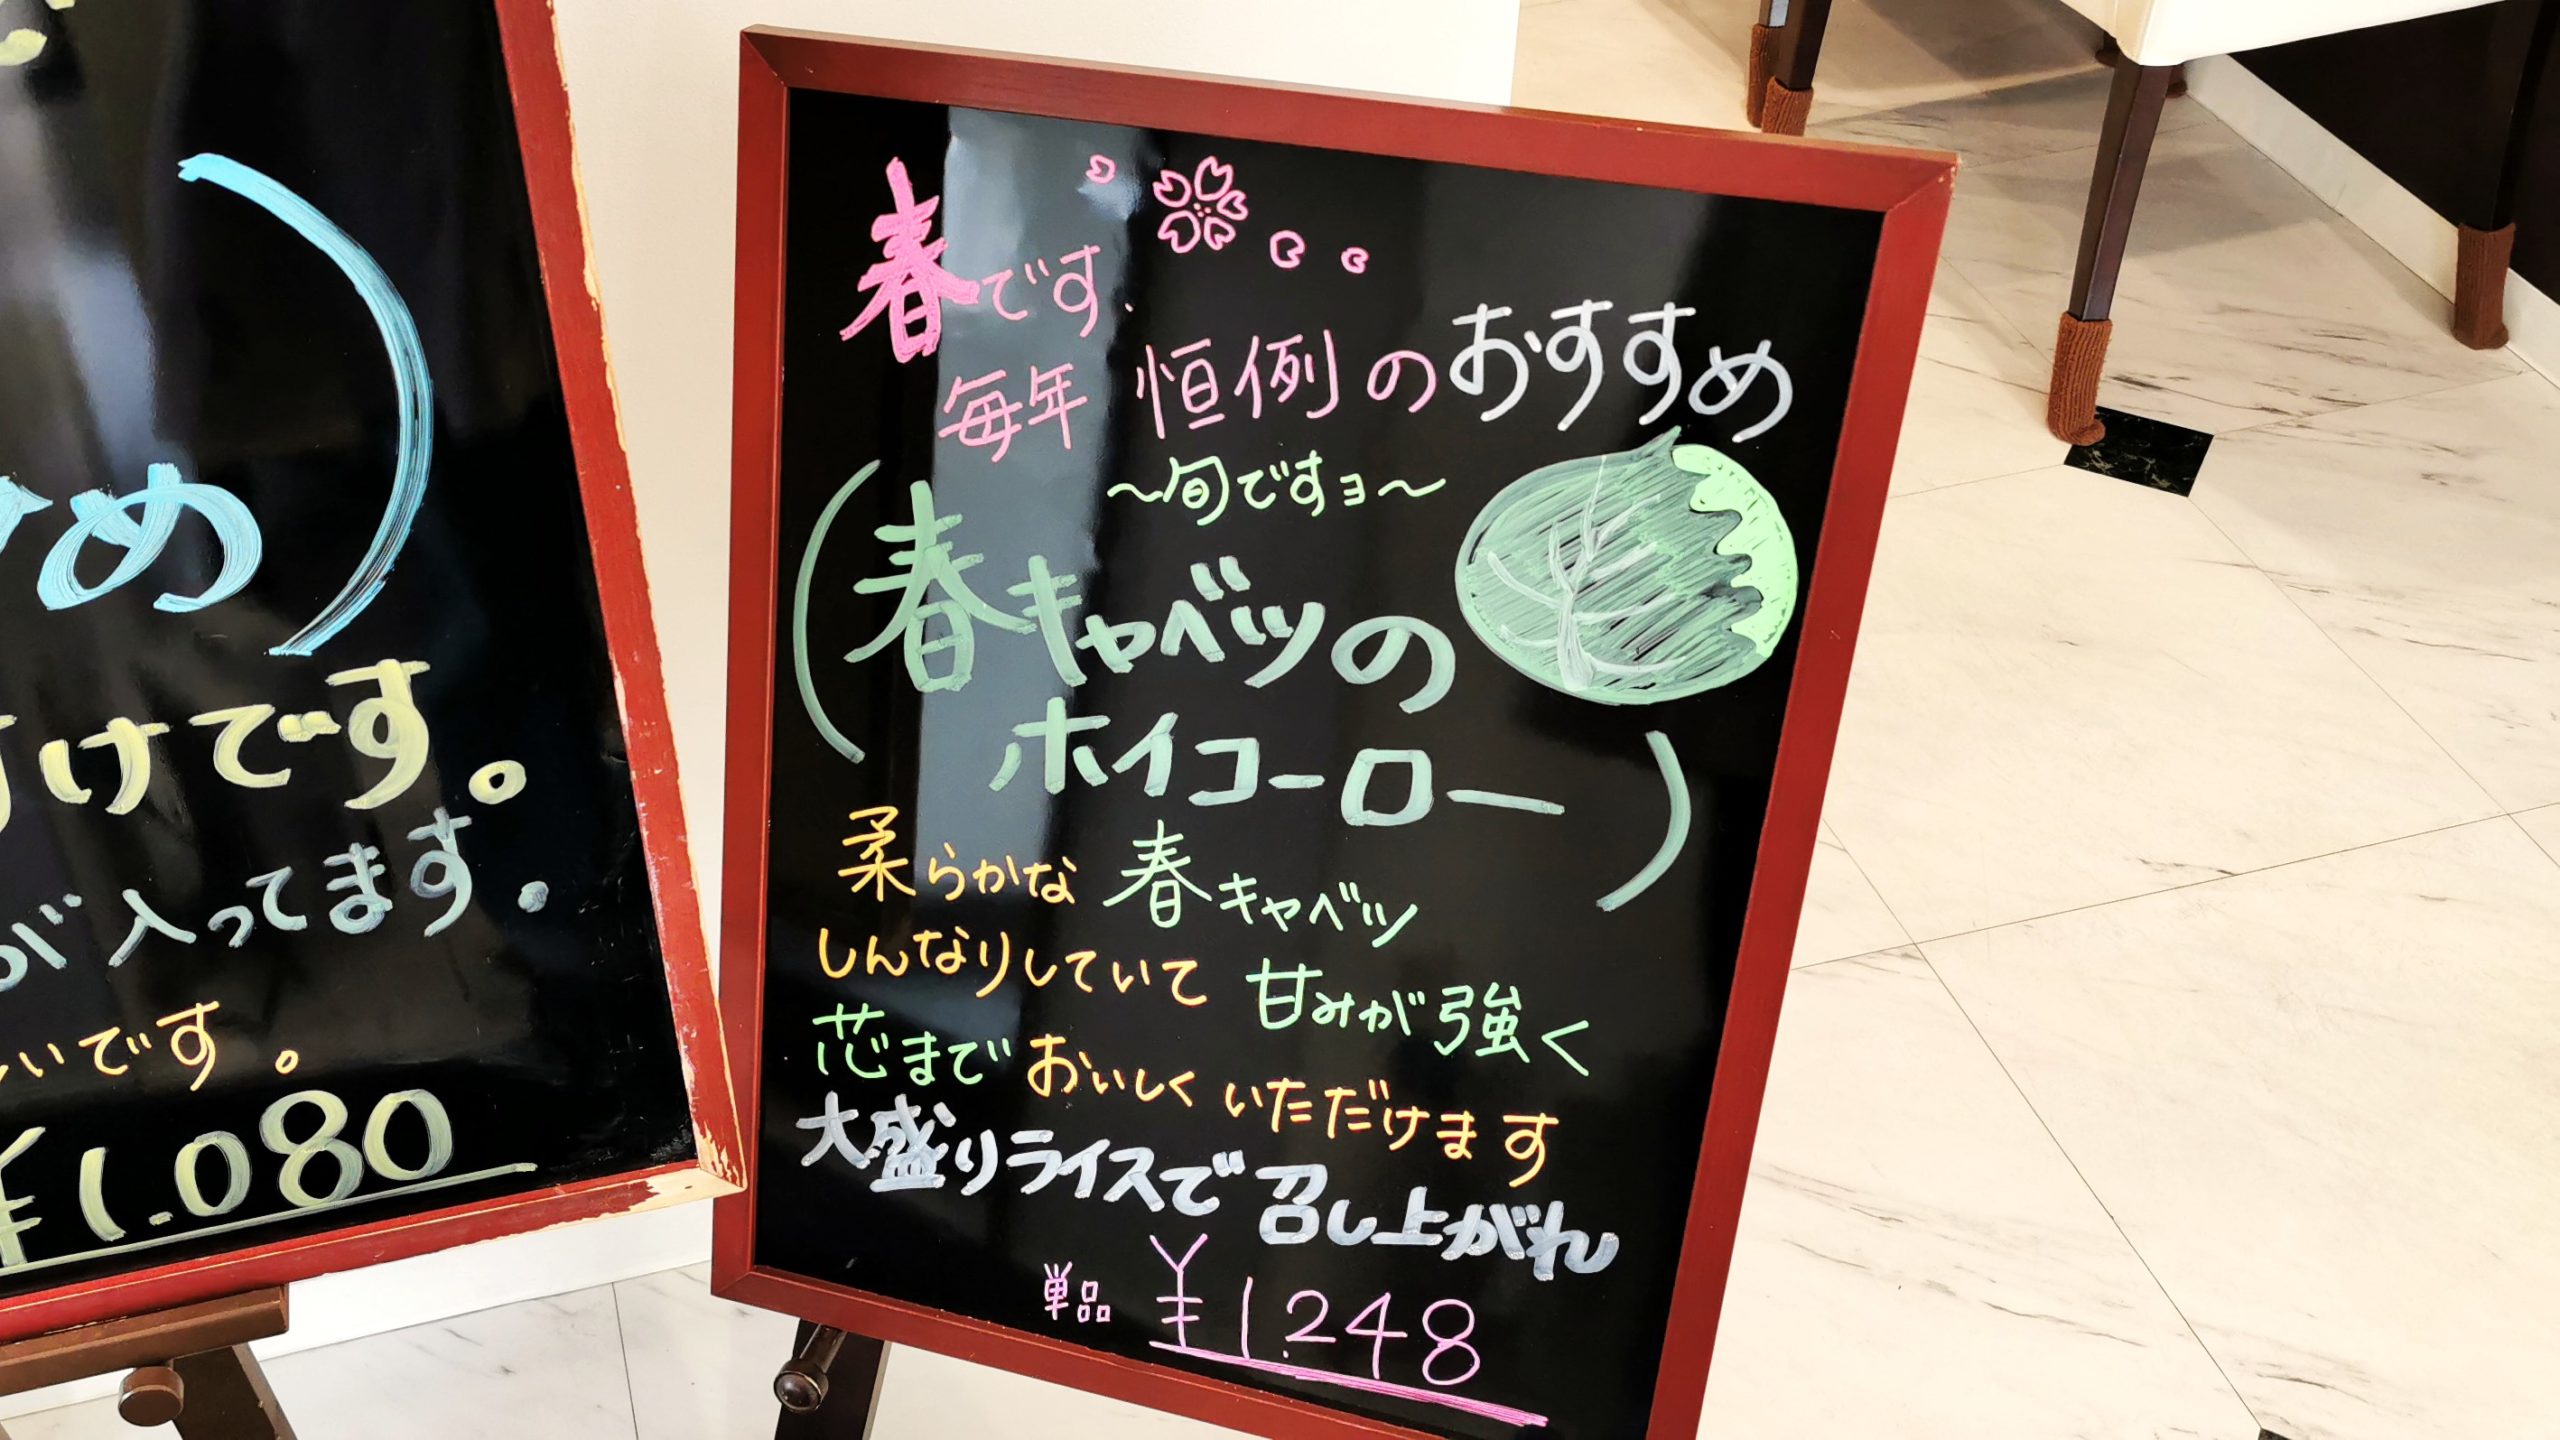 め
けです。
が入ってます.
いです。
¥1.080
春です.
毎年 恒例のおすすめ
〜旬ですョ〜
(春キャベツの
ホイコーロー)
柔らかな 春キャベツ
しんなりしていて 甘みが強く
芯まで おいしく いただけます
大盛りライスで 召し上がれ
単品 ¥1.248